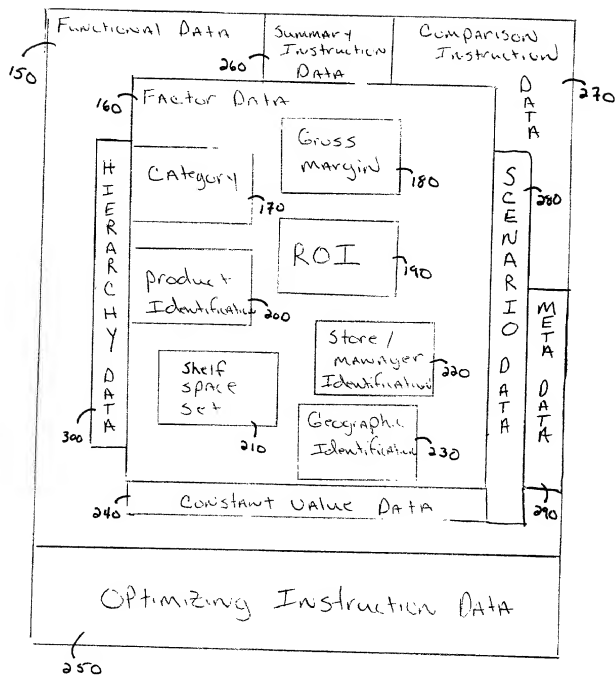 Functional Data
150
Summary
Instruction
Data
260
Comparison
Instruction
DATA
270
160
Factor Data
HIERARCHY DATA
300
Category
170
Gross
Margin
180
ROI
190
Product
Identification
200
Store/
Mawnyer
Identification
220
Shelf
Space
Set
210
Geographic
Identification
230
SCENARIO DATA
280
META DATA
290
240
Constant Value Data
Optimizing Instruction Data
250